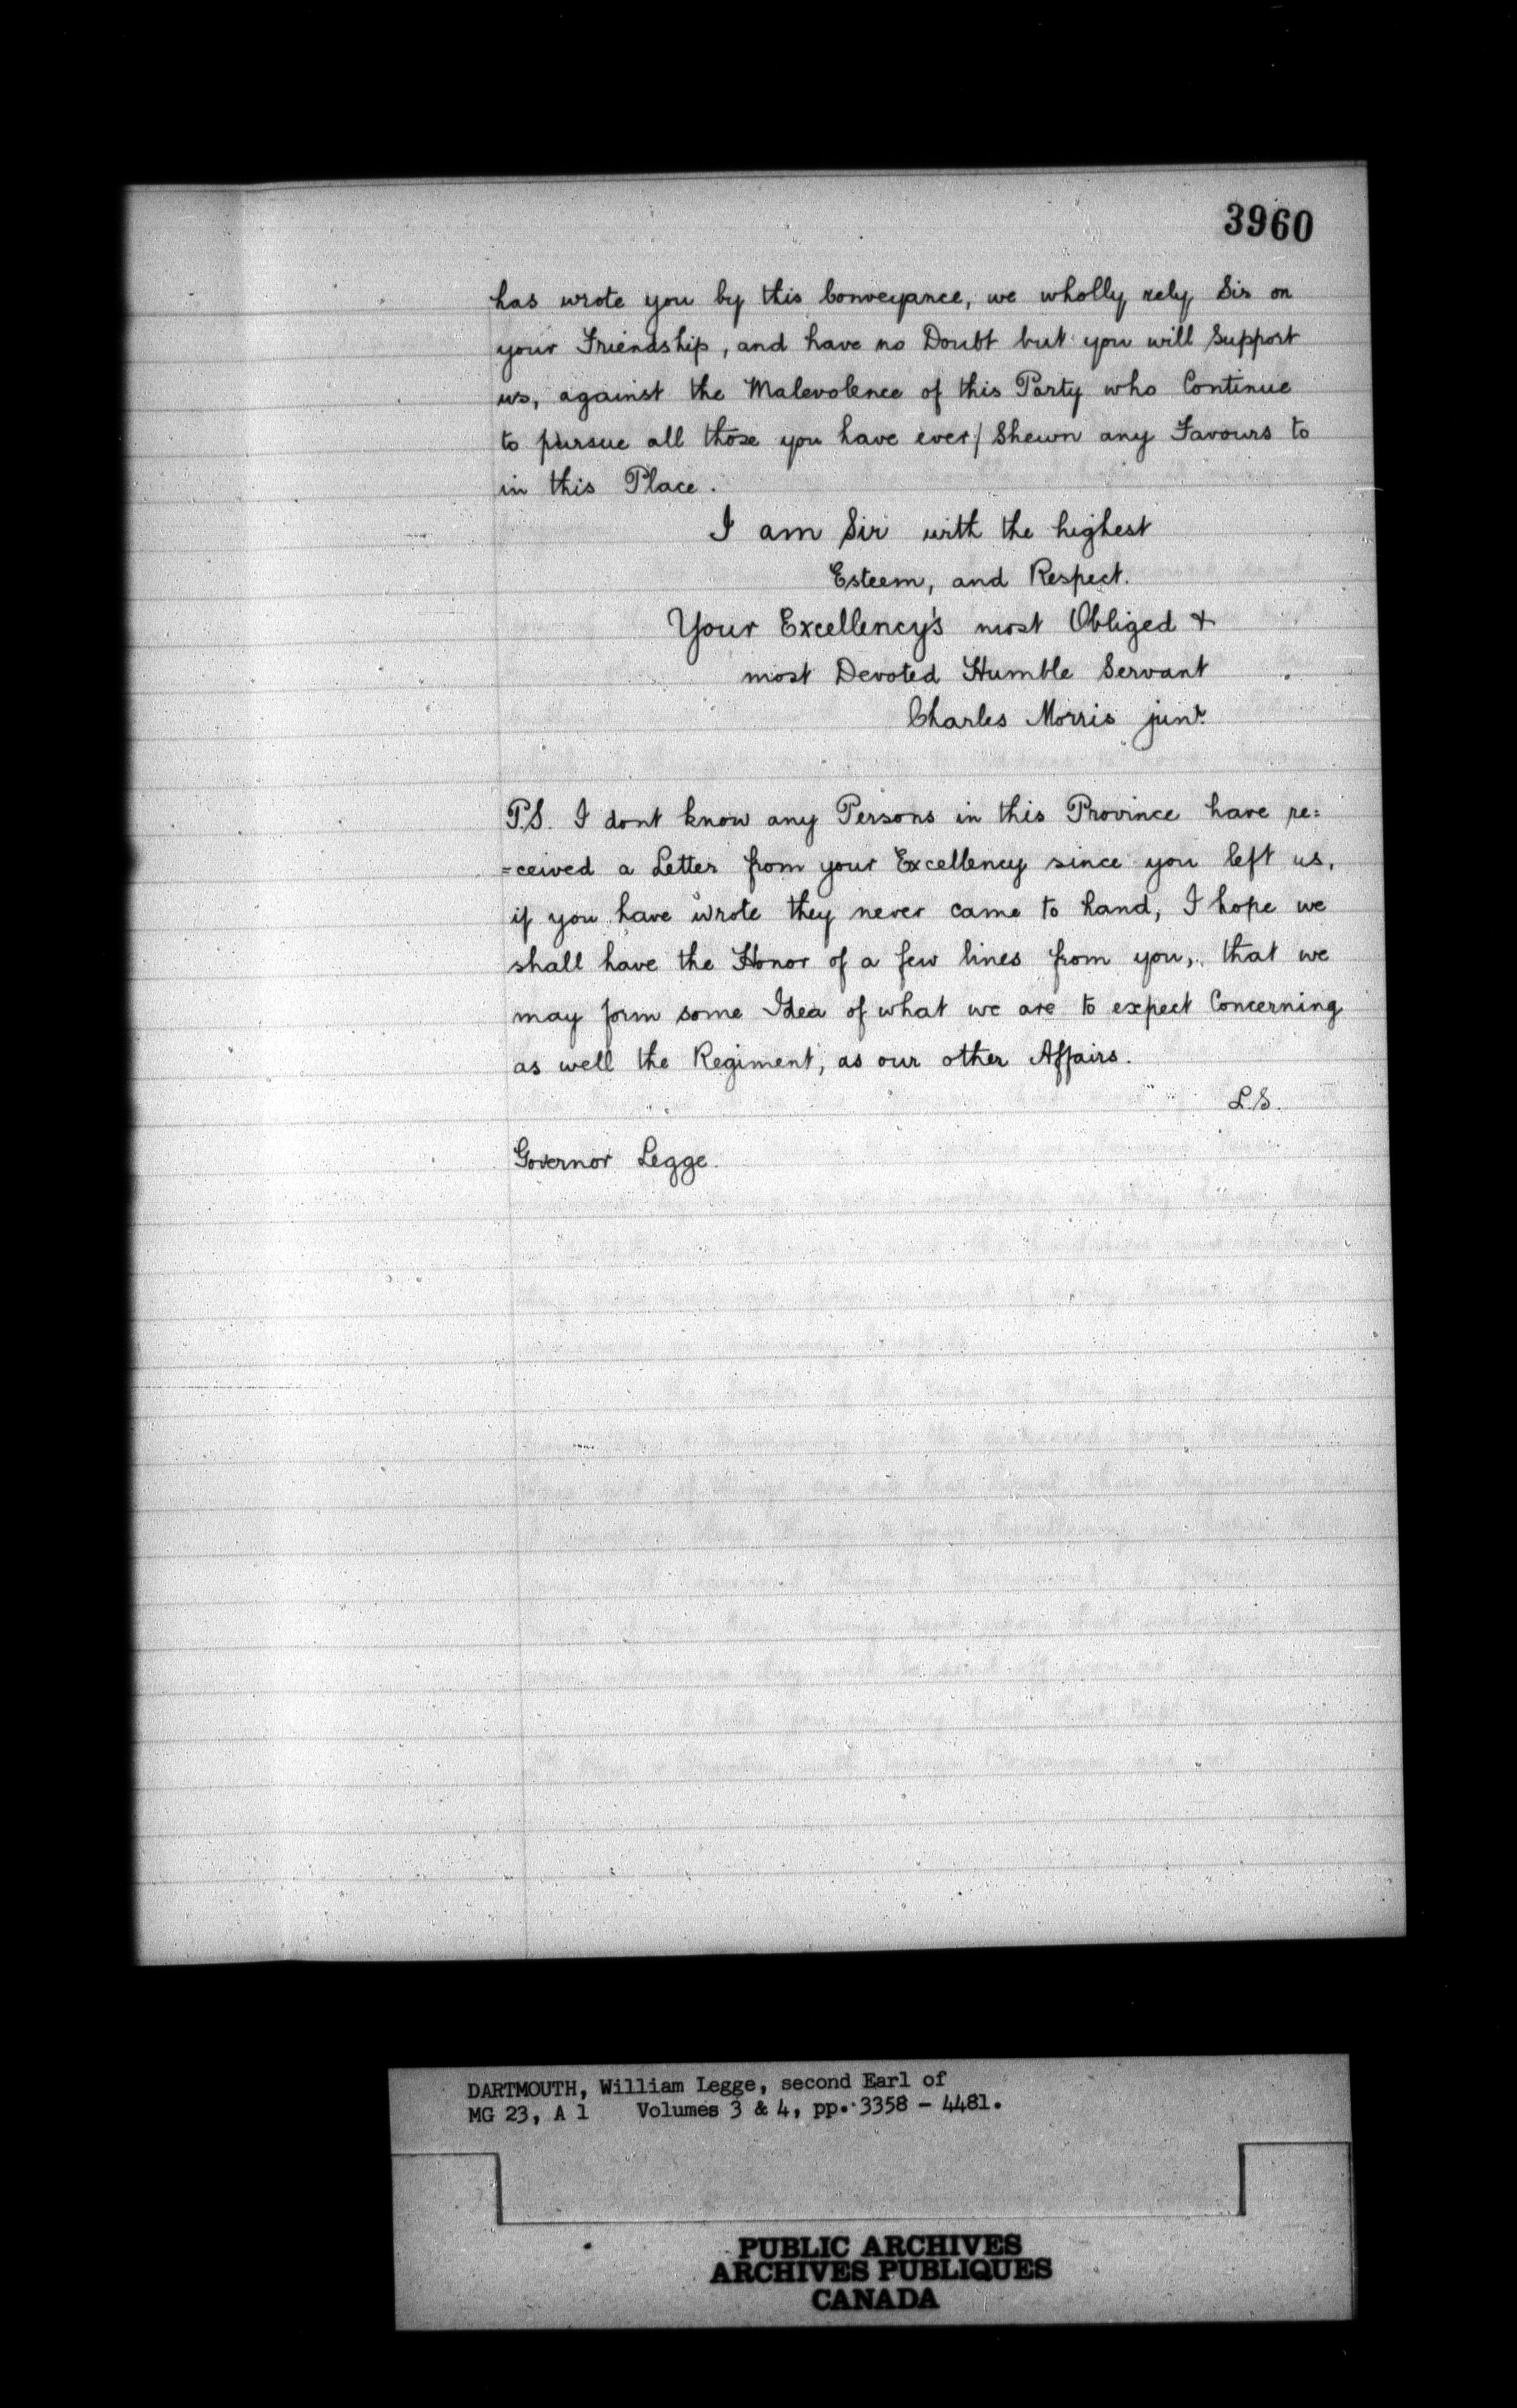 3960
has wrote you by this Conveyance, we wholly rely Sir on
your Friendship, and have no Doubt but you will Support
us, against the Malevolence of this Party who Continue
to pursue all those you have ever/ Shewn any Favours to
in this Place.
I am Sir with the highest
Esteem, and Respect.
Your Excellency's most Obliged &
most Devoted Humble Servant
Charles Morris junr.
P.S. I dont know any Persons in this Province have re=
=ceived a Letter from your Excellency since you left us,
if you have wrote they never came to hand, I hope we
shall have the Honor of a few lines from you, that we
may form some Idea of what we are to expect Concerning
as well the Regiment, as our other Affairs.
L.S.
Governor Legge.
DARTMOUTH, William Legge, second Earl of
MG 23, A 1 Volumes 3 & 4, pp. 3358 - 4481.
PUBLIC ARCHIVES
ARCHIVES PUBLIQUES
CANADA